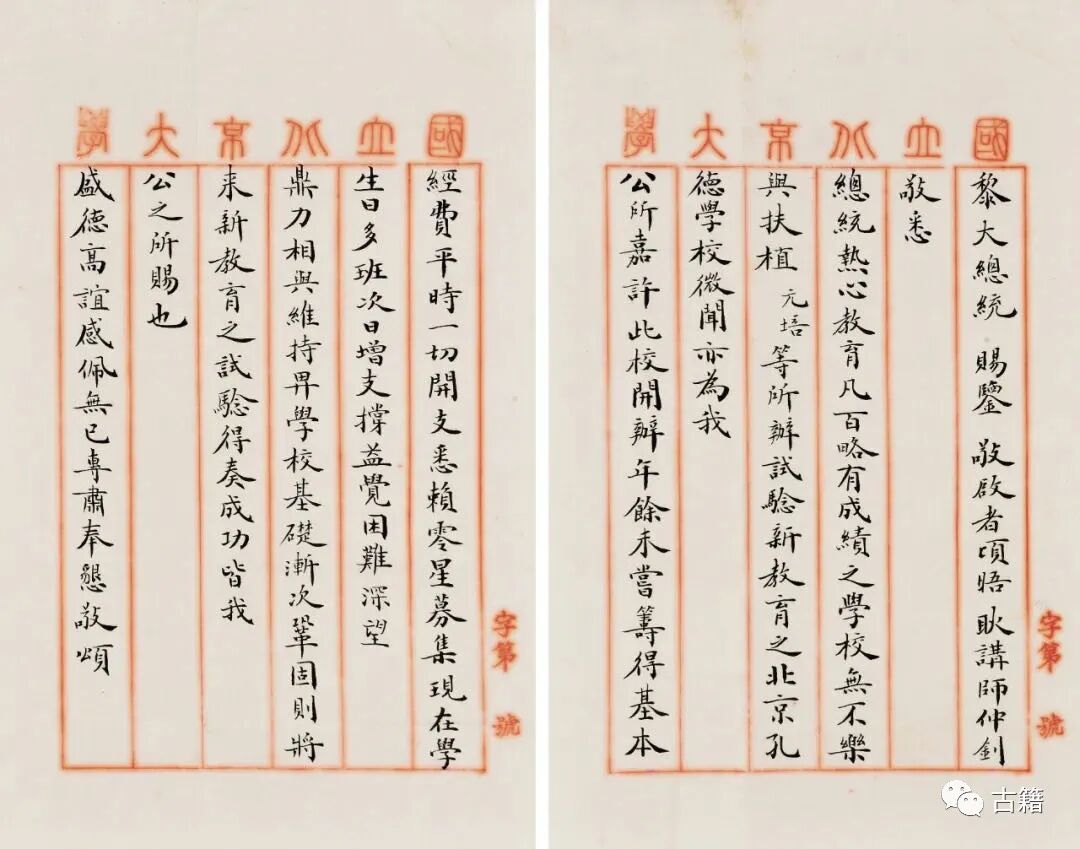 國立北京大學
黎大總統 賜鑒 敬啟者頃晤耿講師仲釗
敬悉
總統熱心教育凡百略有成績之學校無不樂
與扶植 元培等所辦試驗新教育之北京孔
德學校微聞亦為我
公所嘉許此校開辦年餘未嘗籌得基本
字第 號
國立北京大學
經費平時一切開支悉賴零星募集現在學
生日多班次日增支撐益覺困難深望
鼎力相與維持畀學校基礎漸次鞏固則將
来新教育之試驗得奏成功皆我
公之所賜也
盛德高誼感佩無已專肅奉懇敬頌
字第 號
古籍